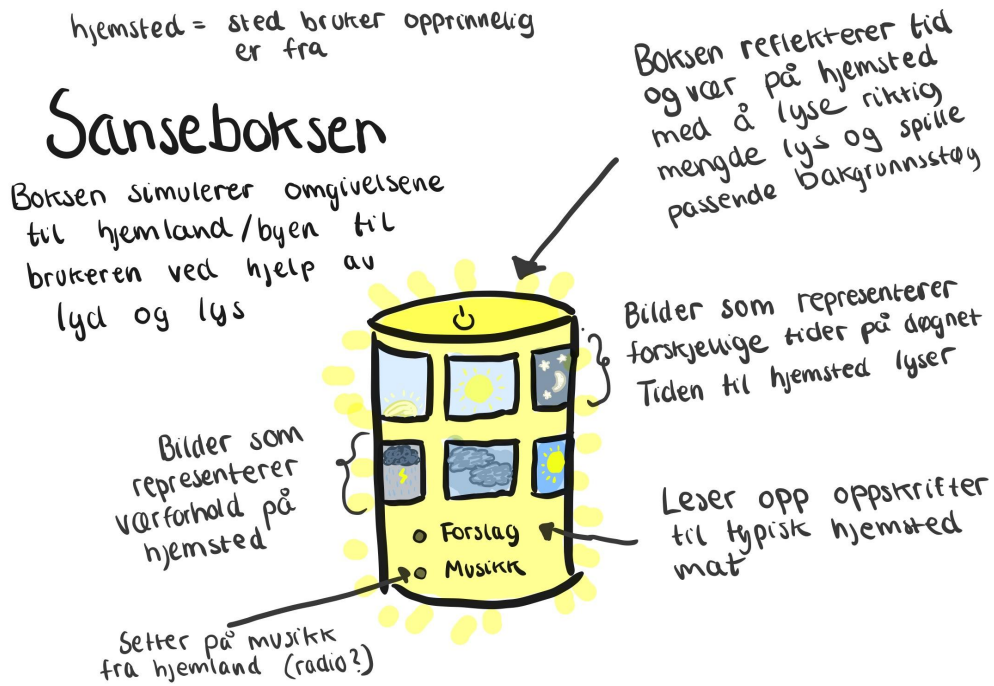 hjemsted = sted bruker opprinnelig
er fra
Sanseboksen
Boksen simulerer omgivelsene
til hjemland/byen til
brukeren ved hjelp av
lyd og lys
Boksen reflekterer tid
og vær på hjemsted
med å lyse riktig
mengde lys og spille
passende bakgrunnsstøy
Bilder som representerer
forskjellige tider på døgnet
Tiden til hjemsted lyser
Bilder som
representerer
værforhold på
hjemsted
Forslag
Musikk
Leser opp oppskrifter
til typisk hjemsted
mat
Setter på musikk
fra hjemland (radio?)